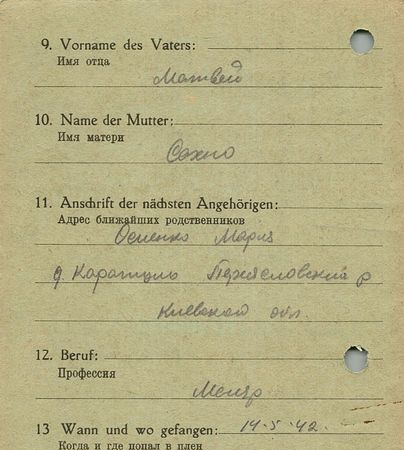 9. Vorname des Vaters:
Имя отца
Матвей
10. Name der Mutter:
Имя матери
Сахно
11. Anschrift der nächsten Angehörigen:
Адрес ближайших родственников
Осиенко Мария
д. Каратуль Переясловский р
Киевской обл.
12. Beruf:
Профессия
13 Wann und wo gefangen: 14.5.42.
Когда и где попал в плен